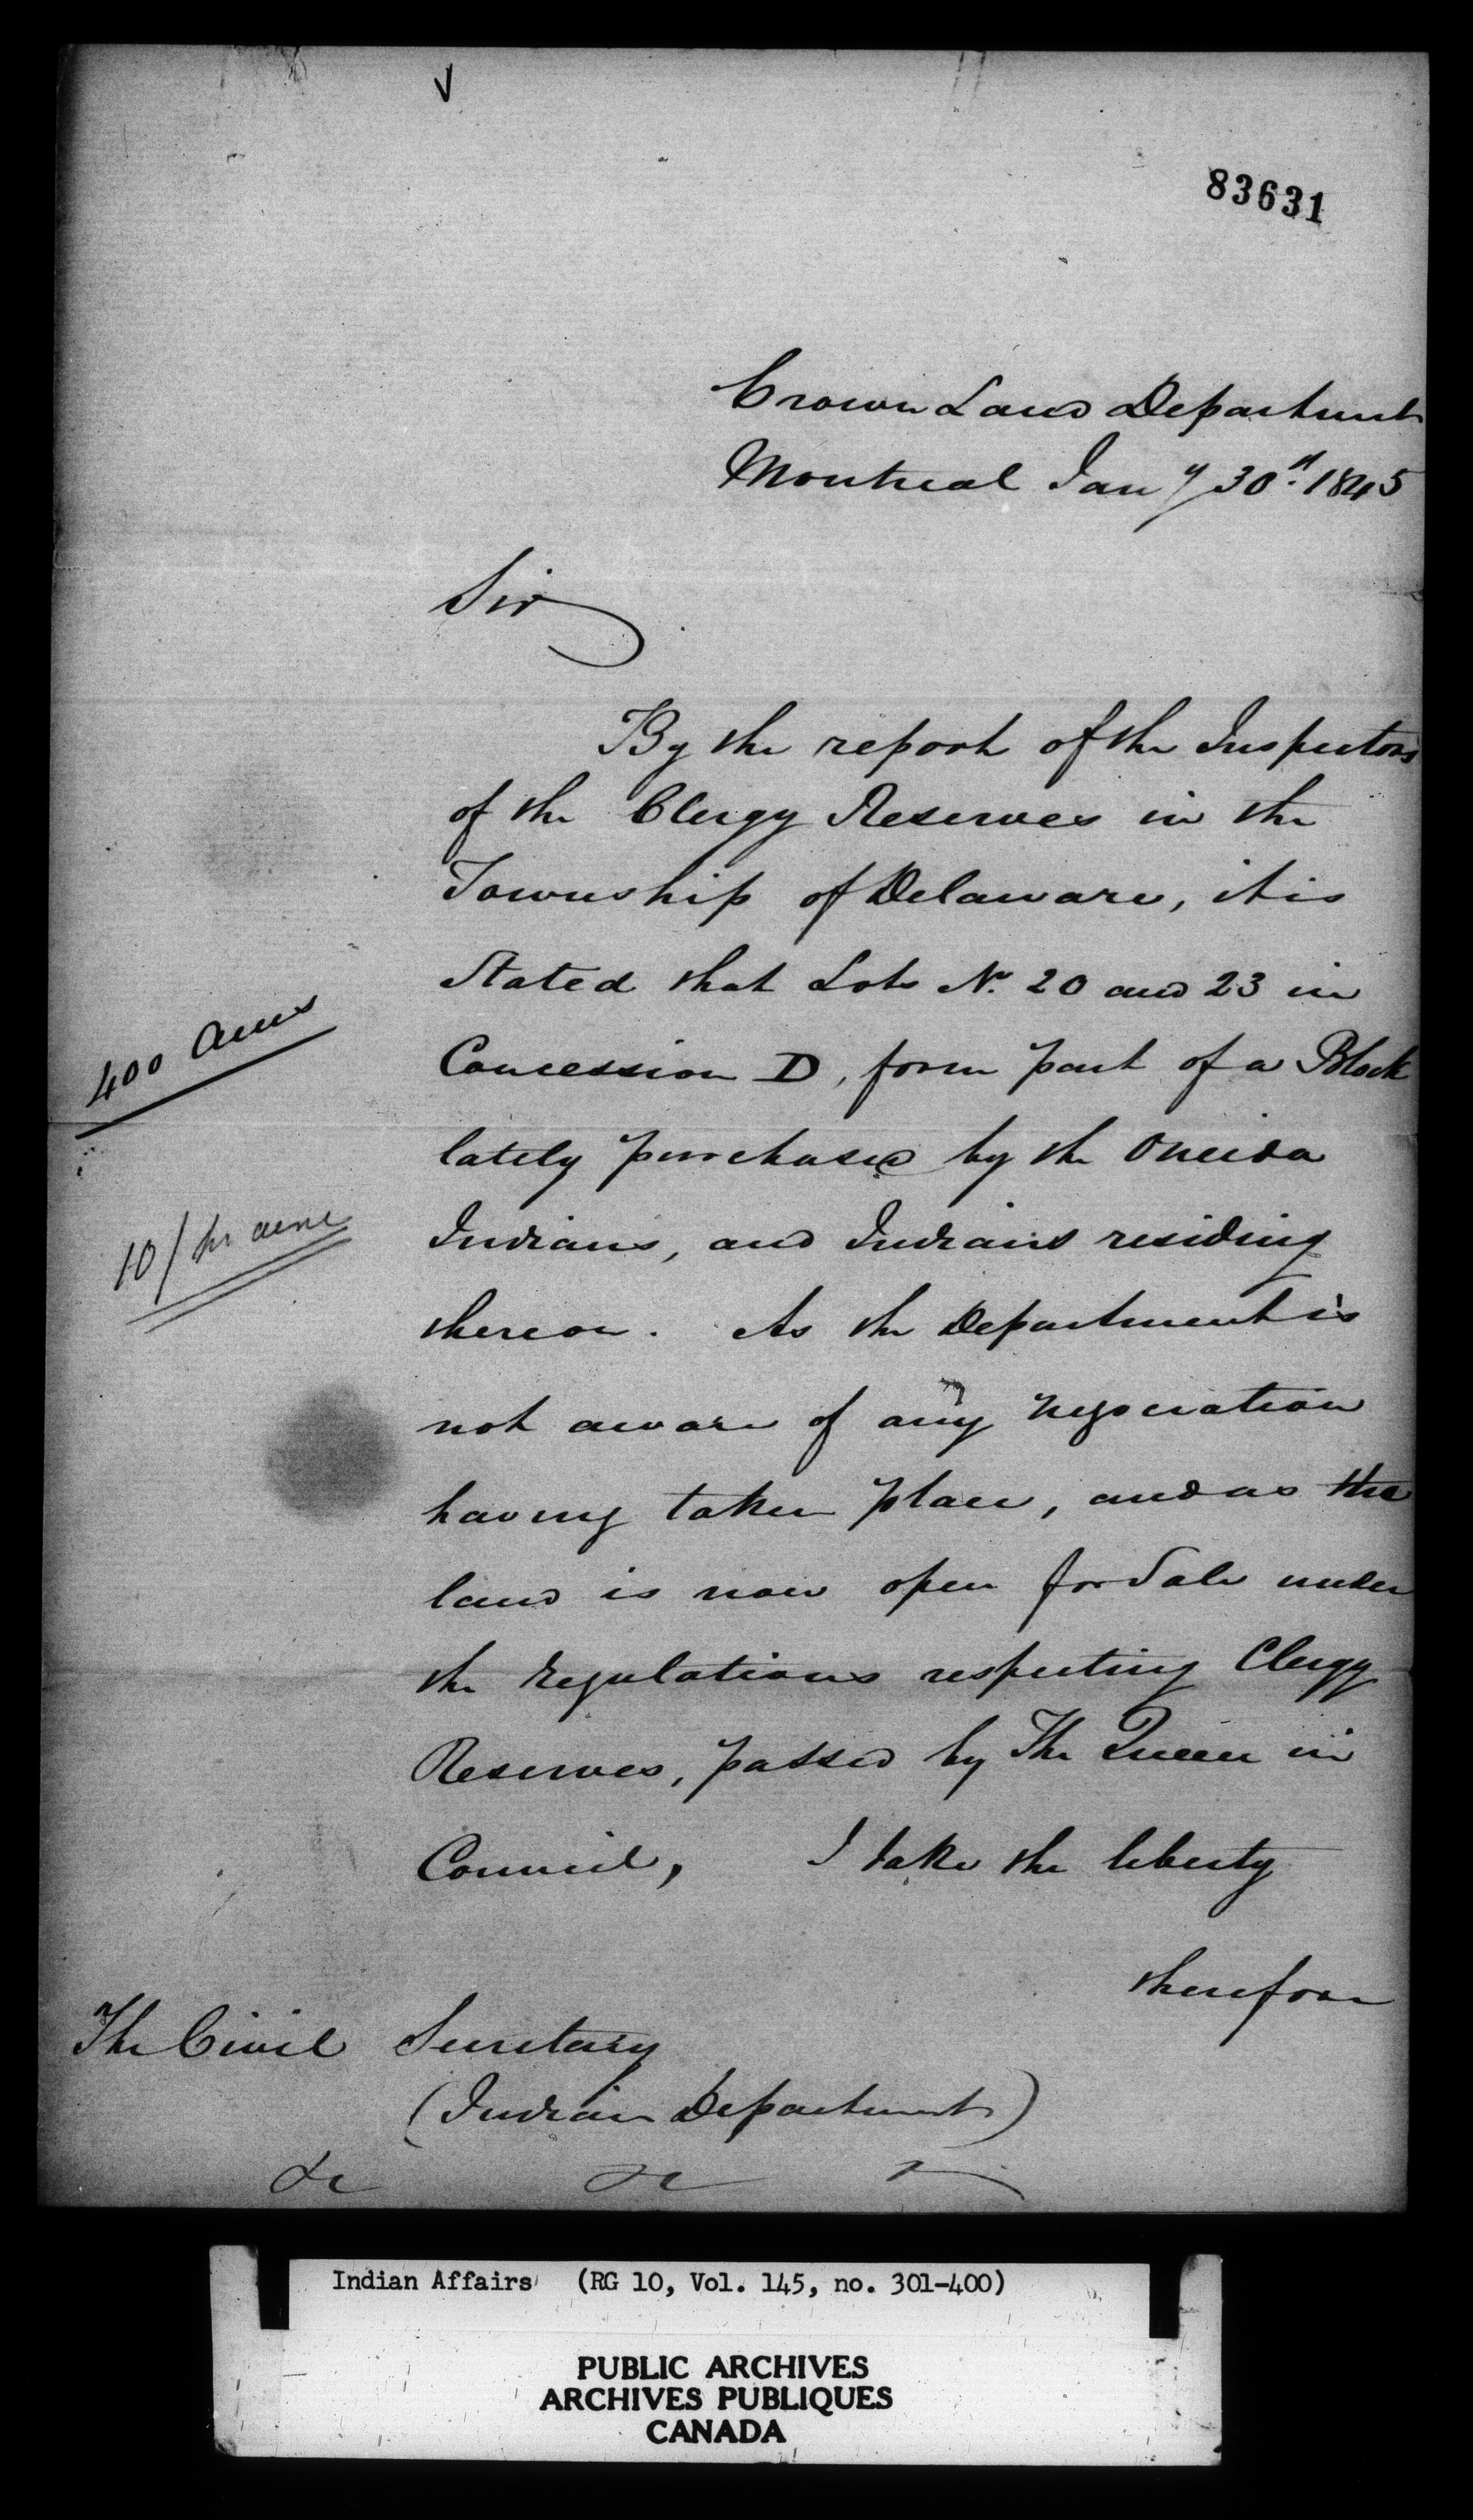 83631
Crown Land Department
Montreal Jany 30th 1845
Sir
By the report of the Inspectors
of the Clergy Reserves in the
Township of Delaware, it is
Stated that Lots No. 20 and 23 in
Concession D, form part of a Block
lately purchased by the Oneida
Indians, and Indians residing
thereon. As the Department is
not aware of any negociation
having taken place, and as the
land is now open for Sale under
the Regulations respecting Clergy
Reserves, passed by The Queen in
Council, I take the liberty
therefore
400 acres
10/ per acre
The Civil Secretary
(Indian Department)
&c &c
Indian Affairs (RG 10, Vol. 145, no. 301-400)
PUBLIC ARCHIVES
ARCHIVES PUBLIQUES
CANADA